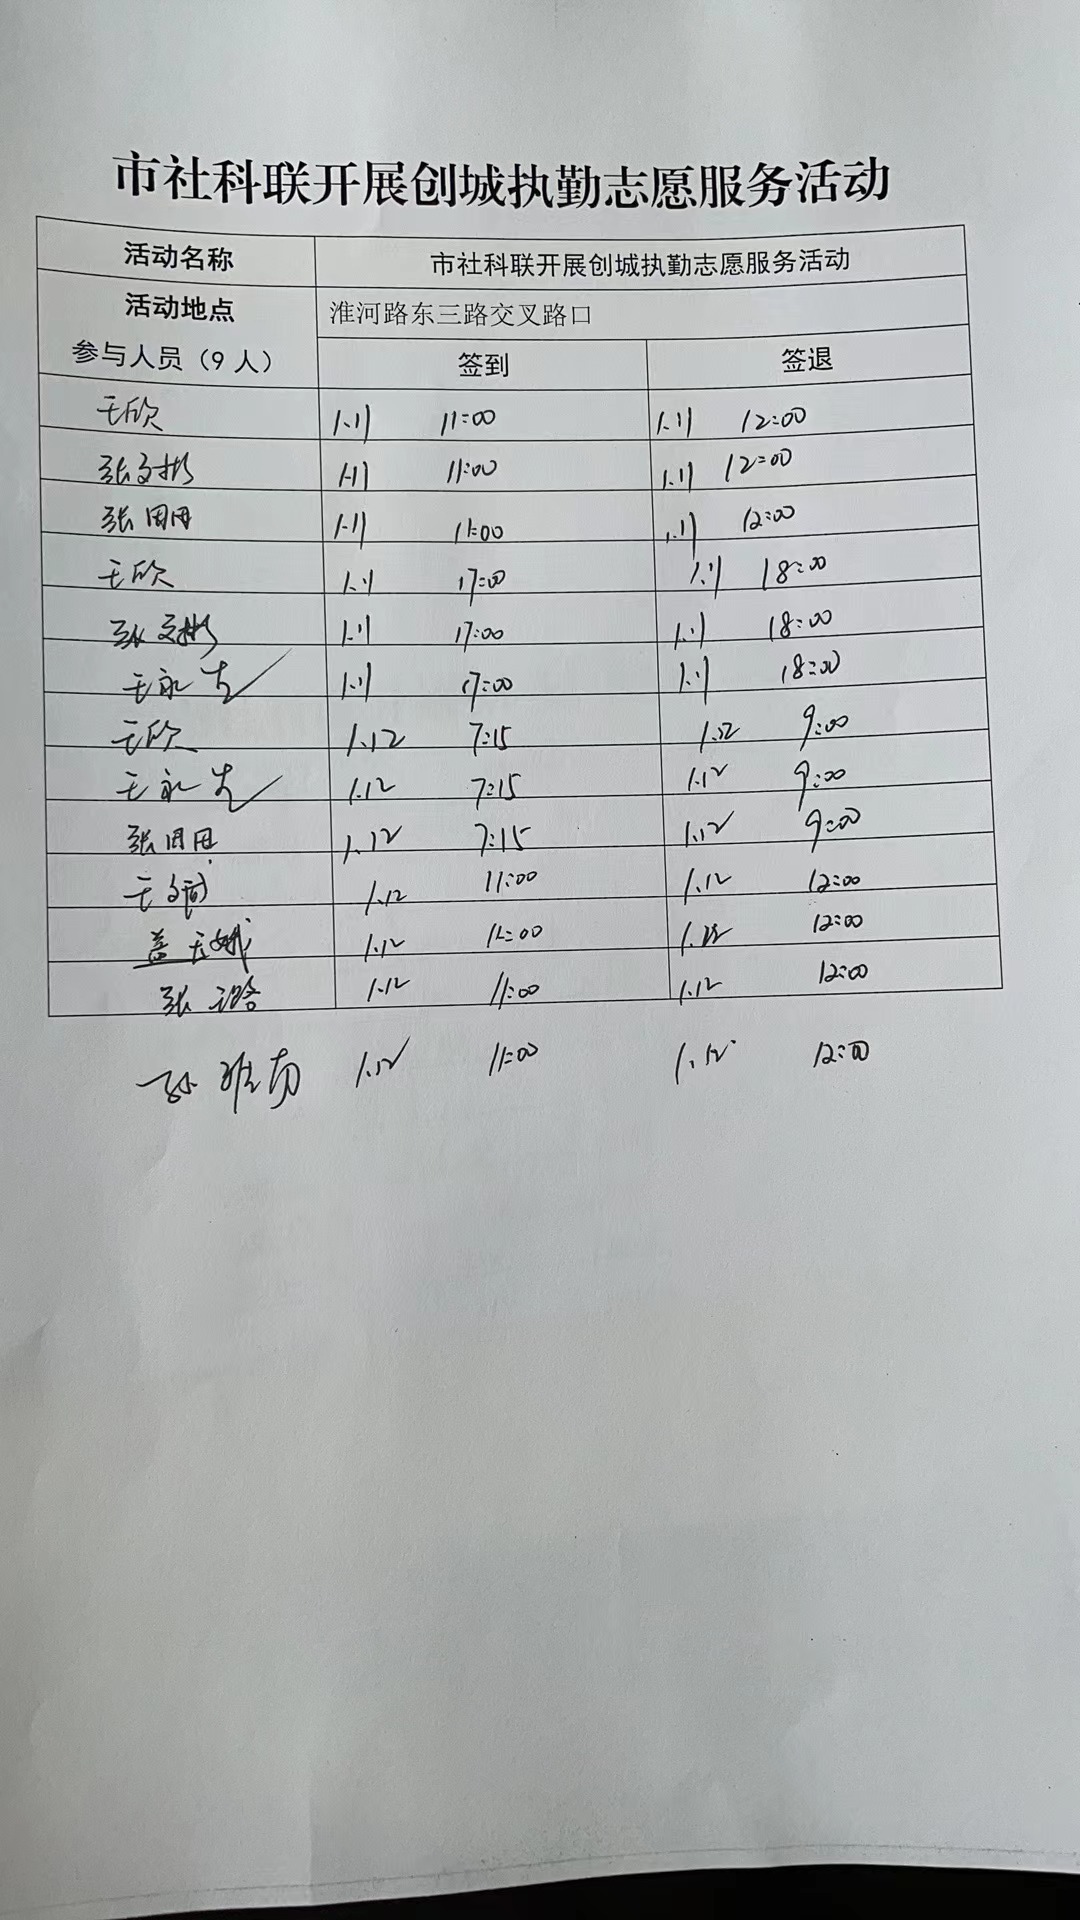 市社科联开展创城执勤志愿服务活动
活动名称 市社科联开展创城执勤志愿服务活动
活动地点 淮河路东三路交叉路口
参与人员（9 人） 签到 签退
王欣 1.11 11:00 1.11 12:00
张文彬 1.11 11:00 1.11 12:00
张 1.11 11:00 1.11 12:00
王欣 1.11 17:00 1.11 18:00
张文彬 1.11 17:00 1.11 18:00
王永 1.11 17:00 1.11 18:00
王欣 1.12 7:15 1.12 9:00
王永 1.12 7:15 1.12 9:00
张 1.12 7:15 1.12 9:00
王 1.12 11:00 1.12 12:00
盖玉娥 1.12 11:00 1.12 12:00
张 1.12 11:00 1.12 12:00
孙雅南 1.12 11:00 1.12 12:00